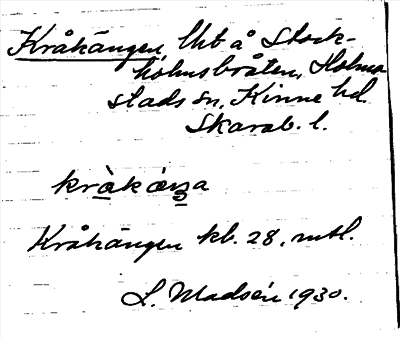 Kråkängen, lht å Stock-
holmsbråten, Holme
stads sn, Kinne hd.
Skarab. l.
kràkæŋa
Kråkängen kb. 28. mtl.
L. Madsén 1930.